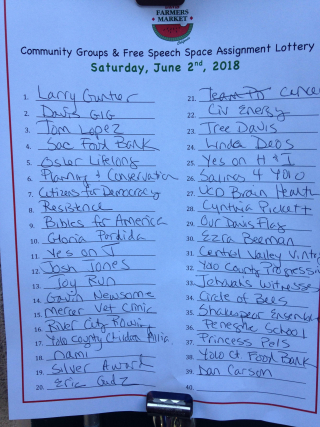 FARMERS
MARKET
Community Groups & Free Speech Space Assignment Lottery
Saturday, June 2nd, 2018
1. Larry Gunther
2. Davis GIG
3. Tom Lopez
4. Sac Food Bank
5. Osher Lifelong
6. Planning & Conservation
7. Citizens for Democracy
8. Resistence
9. Bibles for America
10. Gloria Pardida
11. Yes on J
12. Josh Jones
13. Toy Run
14. Gavin Newsome
15. Mercer Vet Clinic
16. River City
17. Yolo County Children
18. nami
19. Silver Award
20. Eric
21. cancel
22. Civ Energy
23. Tree Davis
24. Linda Deos
25. Yes on H & I
26. Salings 4 YOLO
27. UCD Brain Health
28. Cynthia Pickett
29. Our Davis Flag
30. Ezra Beeman
31. Central Valley Vinta
32. Yolo County Progressiv
33. Jehovahs Witnesses
34. Circle of Bees
35. Shakespear Ensemble
36. School
37. Princess Pals
38. Yolo Ct. Food Bank
39. Dan Carson
40.